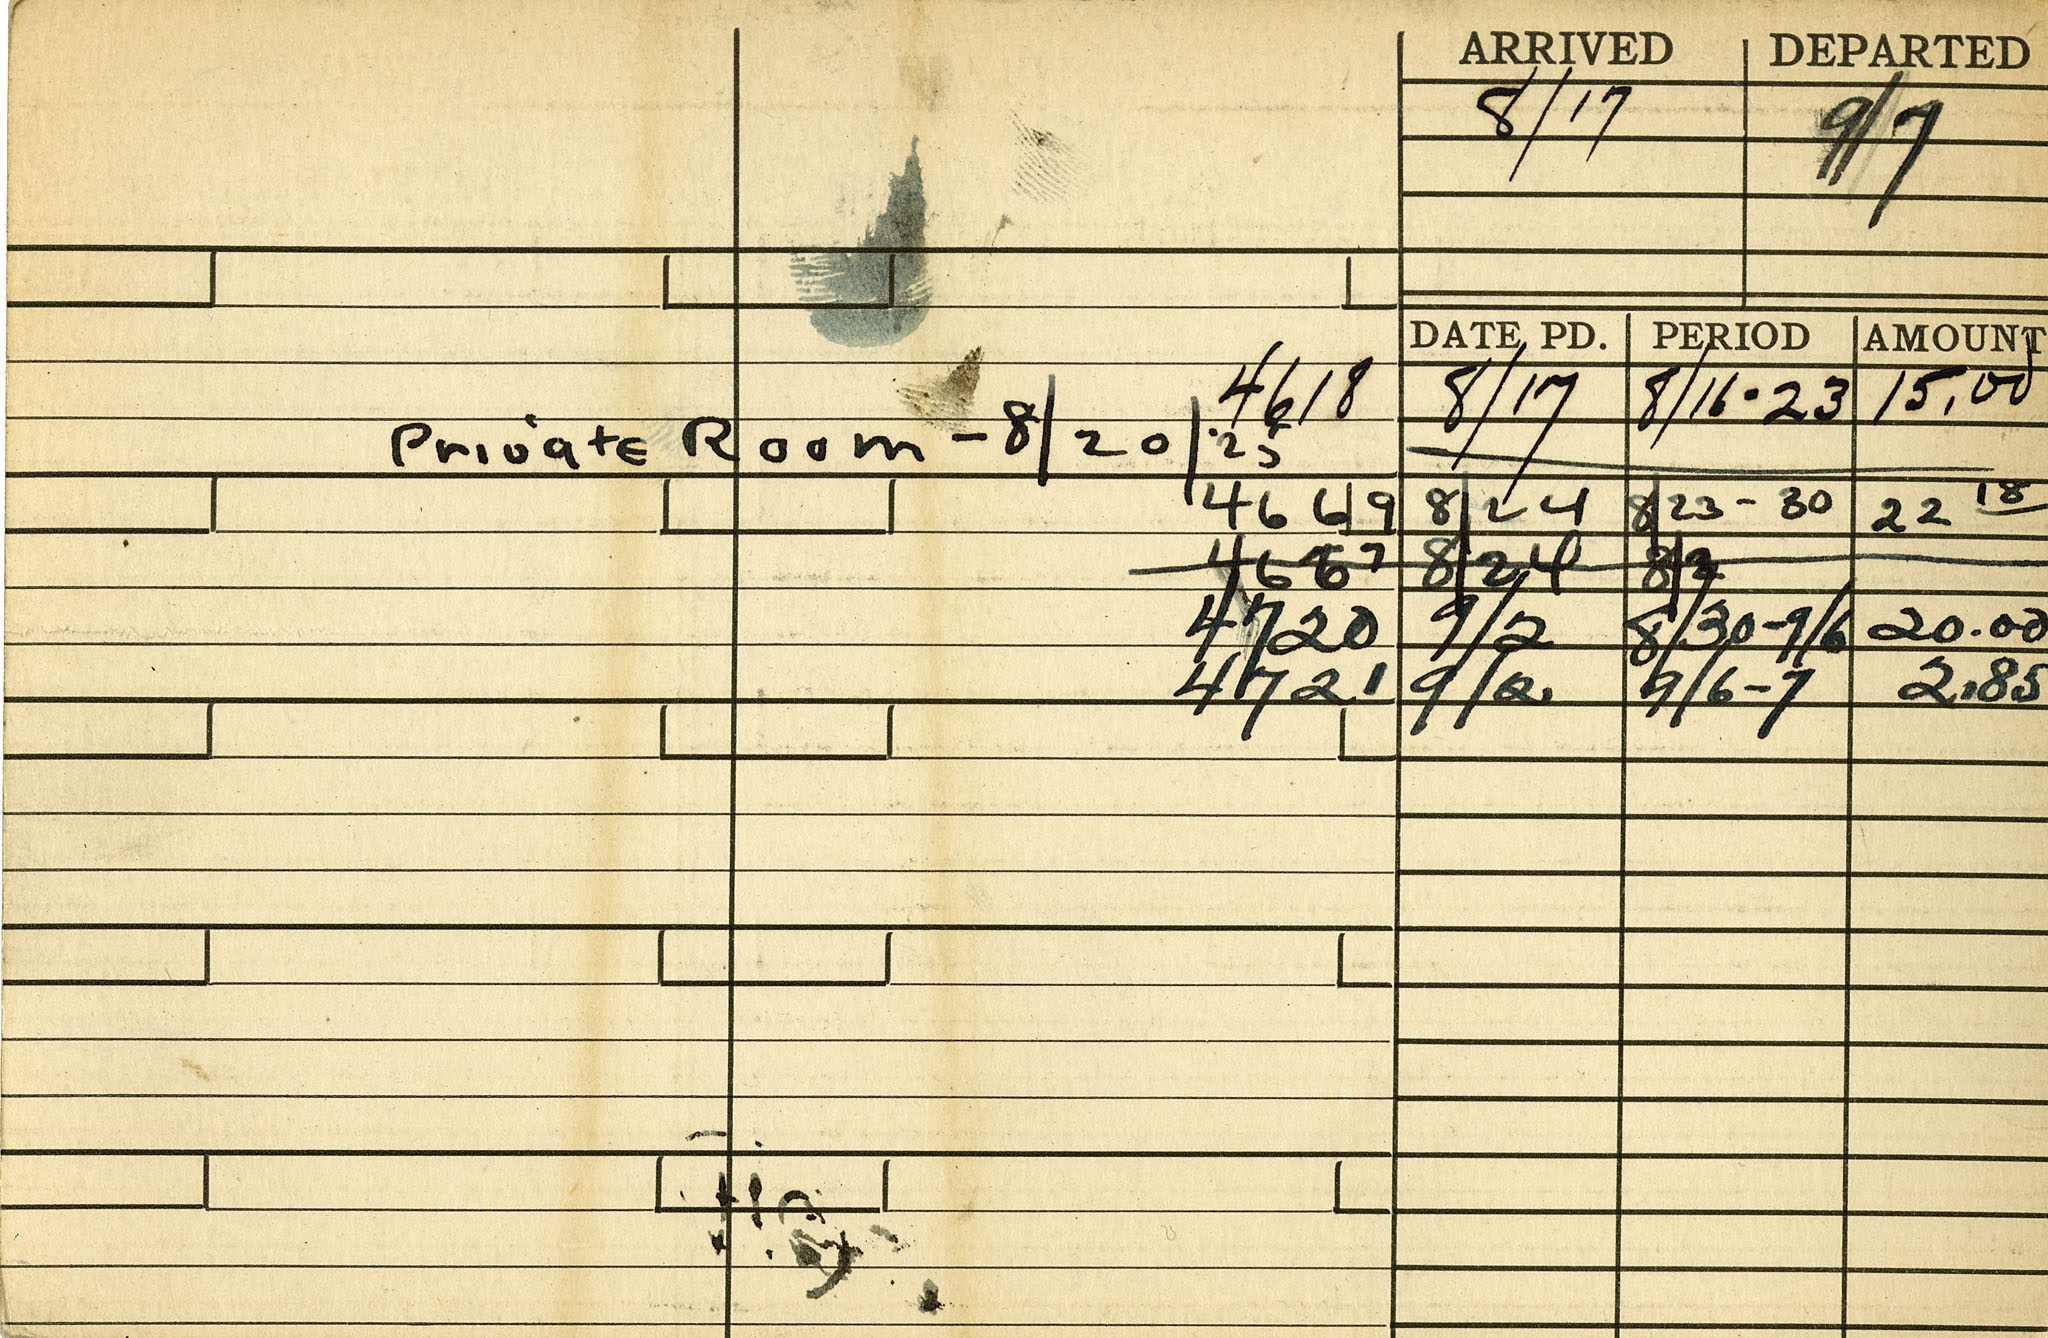 ARRIVED DEPARTED
8/17 9/7
DATE PD. PERIOD AMOUNT
4618 8/17 8/16-23 15.00
Private Room - 8/20/25
4669 8/24 8/23-30 22 18
4667 8/24 8/2
4720 9/2 8/30-9/6 20.00
4721 9/2. 9/6-7 2.85